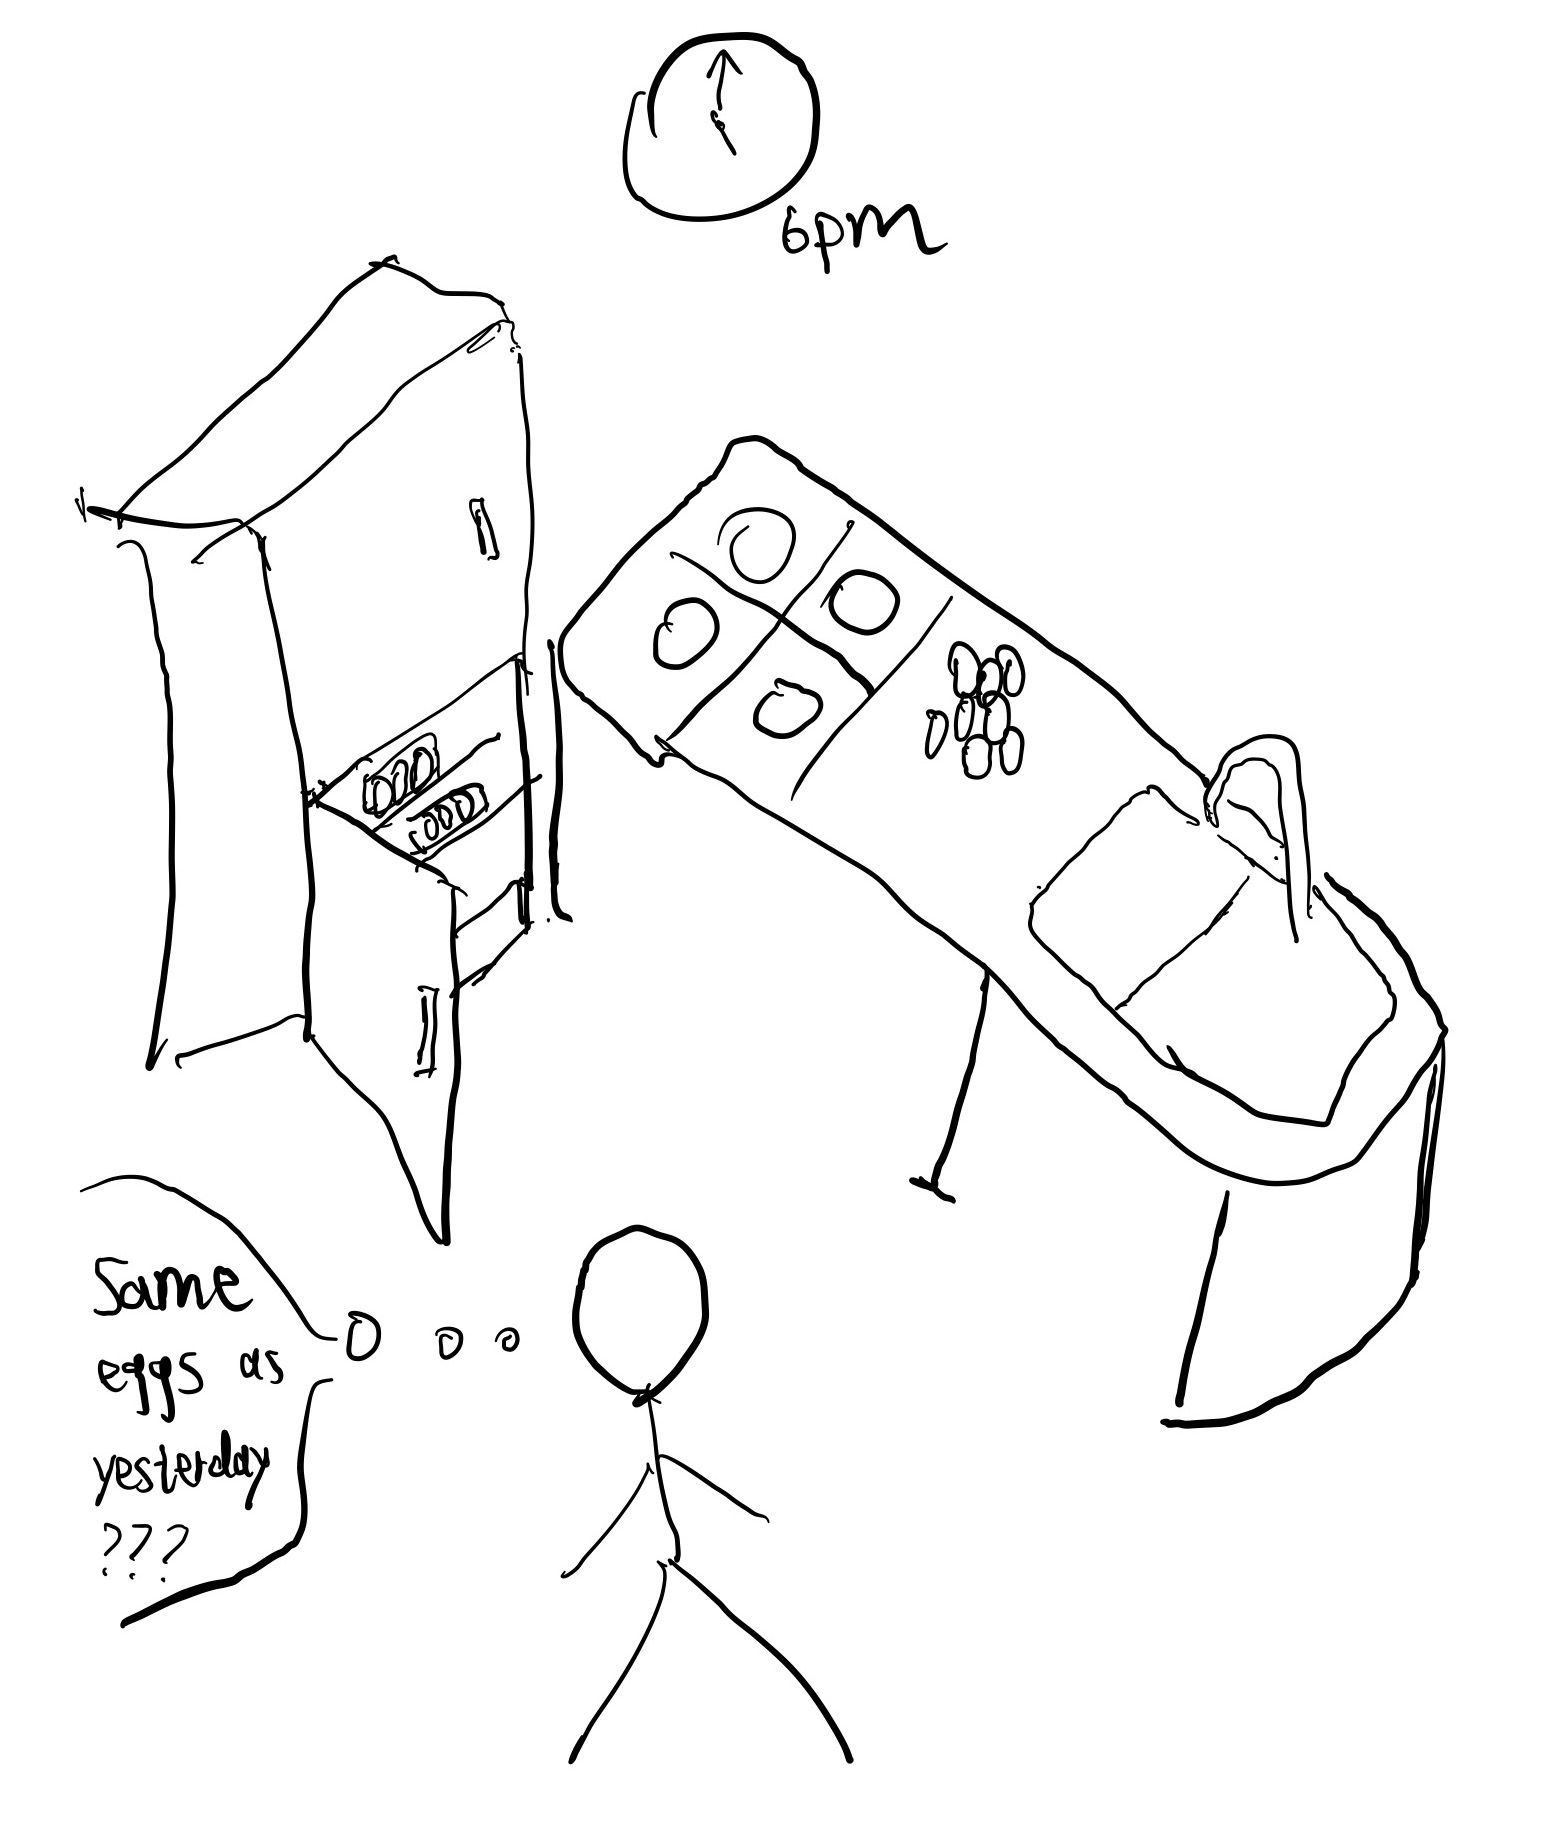 6pm
Same
eggs as
yesterday
???